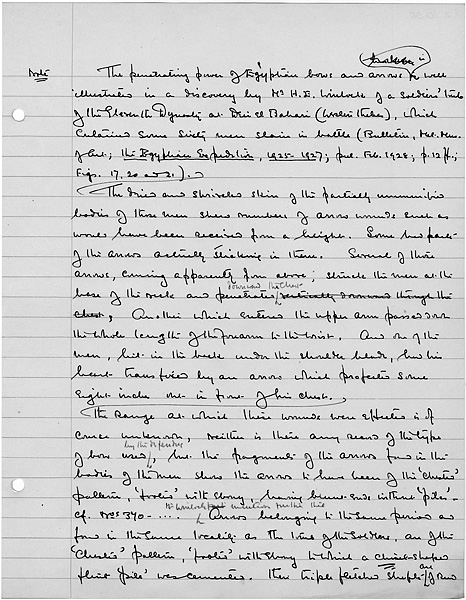 Note The penetrating power of Egyptian bows and arrows is well
illustrated in a discovery by Mr H.E. Winlock of a soldiers' tomb
of the Eleventh Dynasty at Deir el Bahari (Western Thebes), which
contained some sixty men slain in battle (Bulletin, Met. Mus.
of Art; the Egyptian Expedition, 1925-1927; pub. Feb. 1928; p. 12 ff;
Figs. 17, 20 and 21).
The dried and shriveled skin of the partially mummified
bodies of these men shew numbers of arrow wounds such as
would have been received from a height. Some had parts
of the arrows actually sticking in them. Several of these
arrows, coming apparently from above, struck the men at the
downward the chest
base of the neck and penetrated vertically downward through the
chest, Another which entered the upper arm passed down
the whole length of the forearm to the wrist. And one of the
men, hit in the back under the shoulder blade, had his
heart transfixed by an arrow which projected some
eight inches out in front of his chest.
The Range at which these wounds were effected is of
course unknown, neither is there any record of the type
by the defenders
of bow used, but the fragments of the arrows found in the
bodies of the men show the arrows to have been of the 'Chester'
pattern, 'footed' with ebony, having blunt-ends instead 'piles' -
cf. Nos 370 - .... Arrows belonging to the same period as
found in the same locality as the tomb of the soldiers, are of the
'Chester' pattern, 'footed' with ebony to which a chisel-shaped
flint 'pile' was cemented. Their triple fletched shafts are of reed